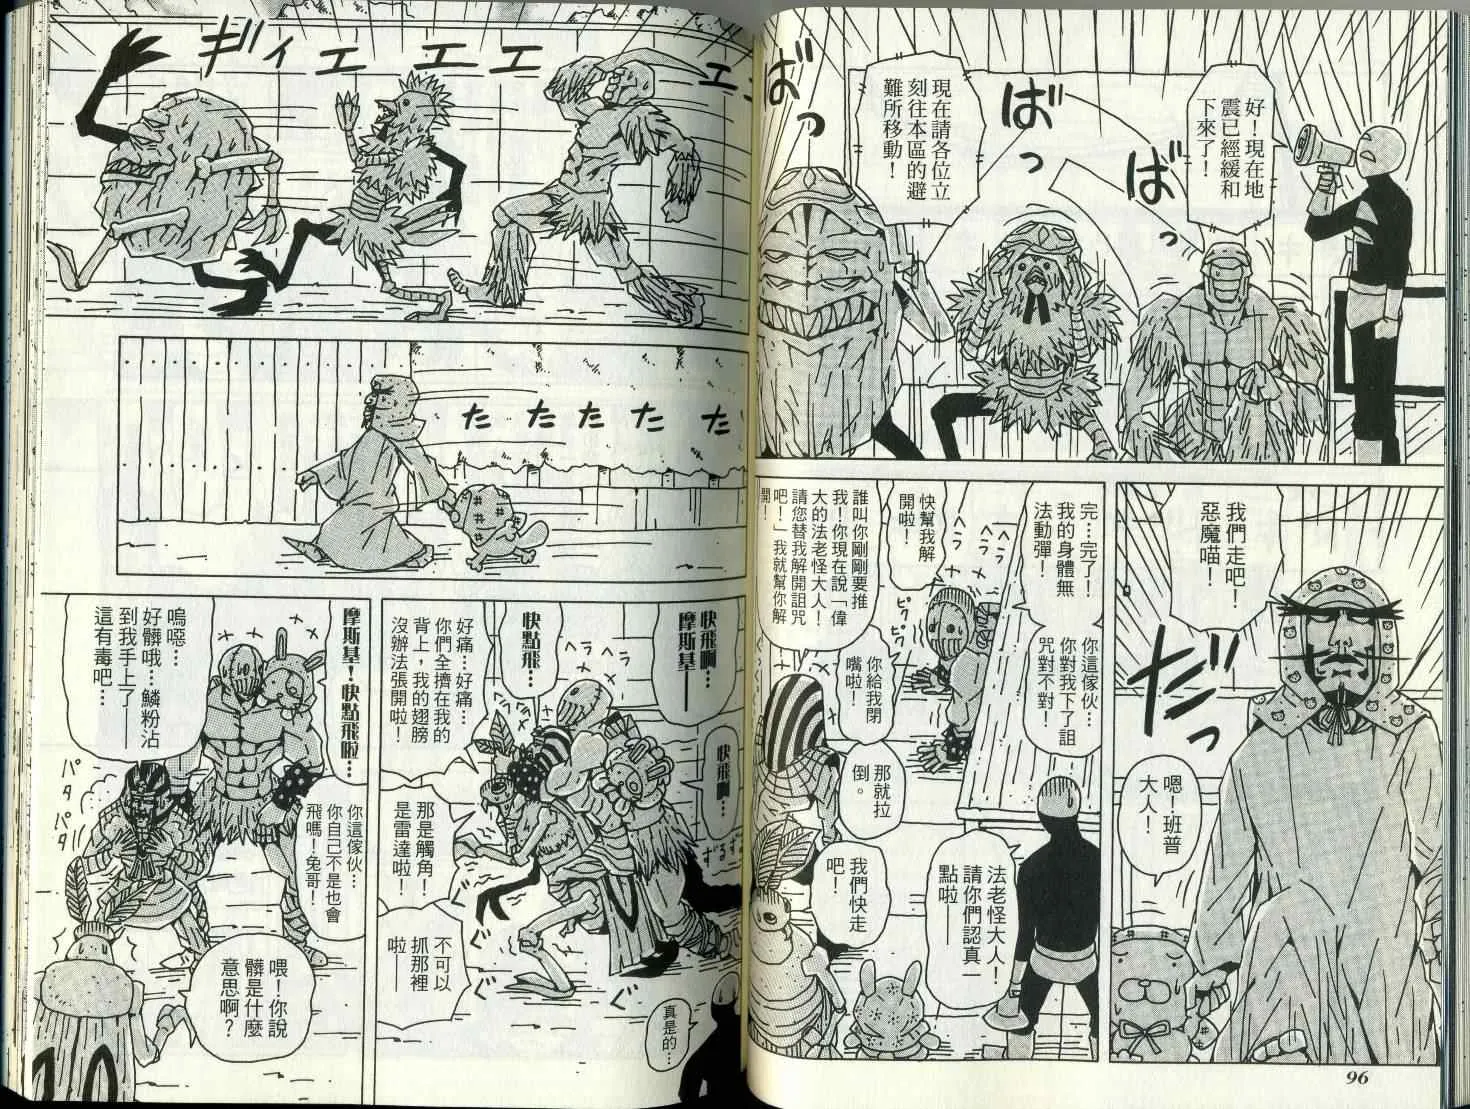 好！現在地
震已經緩和
下來了！
現在請各位立
刻往本區的避
難所移動！
ばっ
ばっ
ばっ
我們走吧！
惡魔喵！
嗯！班普
大人！
だっ
完…完了！
我的身體無
法動彈！
你這傢伙…
你對我下了詛
咒對不對！
快幫我解
開啦！
ヘラ
ヘラ
ピク
ピク
誰叫你剛剛要推
我！你現在說「偉
大的法老怪大人！
請您替我解開詛咒
吧！」我就幫你解
開！
你給我閉
嘴啦！
那就拉
倒。
法老怪大人！
請你們認真一
點啦——
我們快走
吧！
96
ギィエエエエ
たたたたた
快飛啊…
摩斯基——
快飛啊…
快點飛…
ヘラ
ヘラ
好痛…好痛…
你們全擠在我的
背上，我的翅膀
沒辦法張開啦！
那是觸角！
是雷達啦！
不可以
抓那裡
啦——
ぐ
ぐ
真是的…
摩斯基！快點飛啦…
你這傢伙…
你自己不是也會
飛嗎！兔哥！
嗚噁…
好髒哦…鱗粉沾
到我手上了——
這有毒吧…
パタ
パタ
喂！你說
髒是什麼
意思啊？